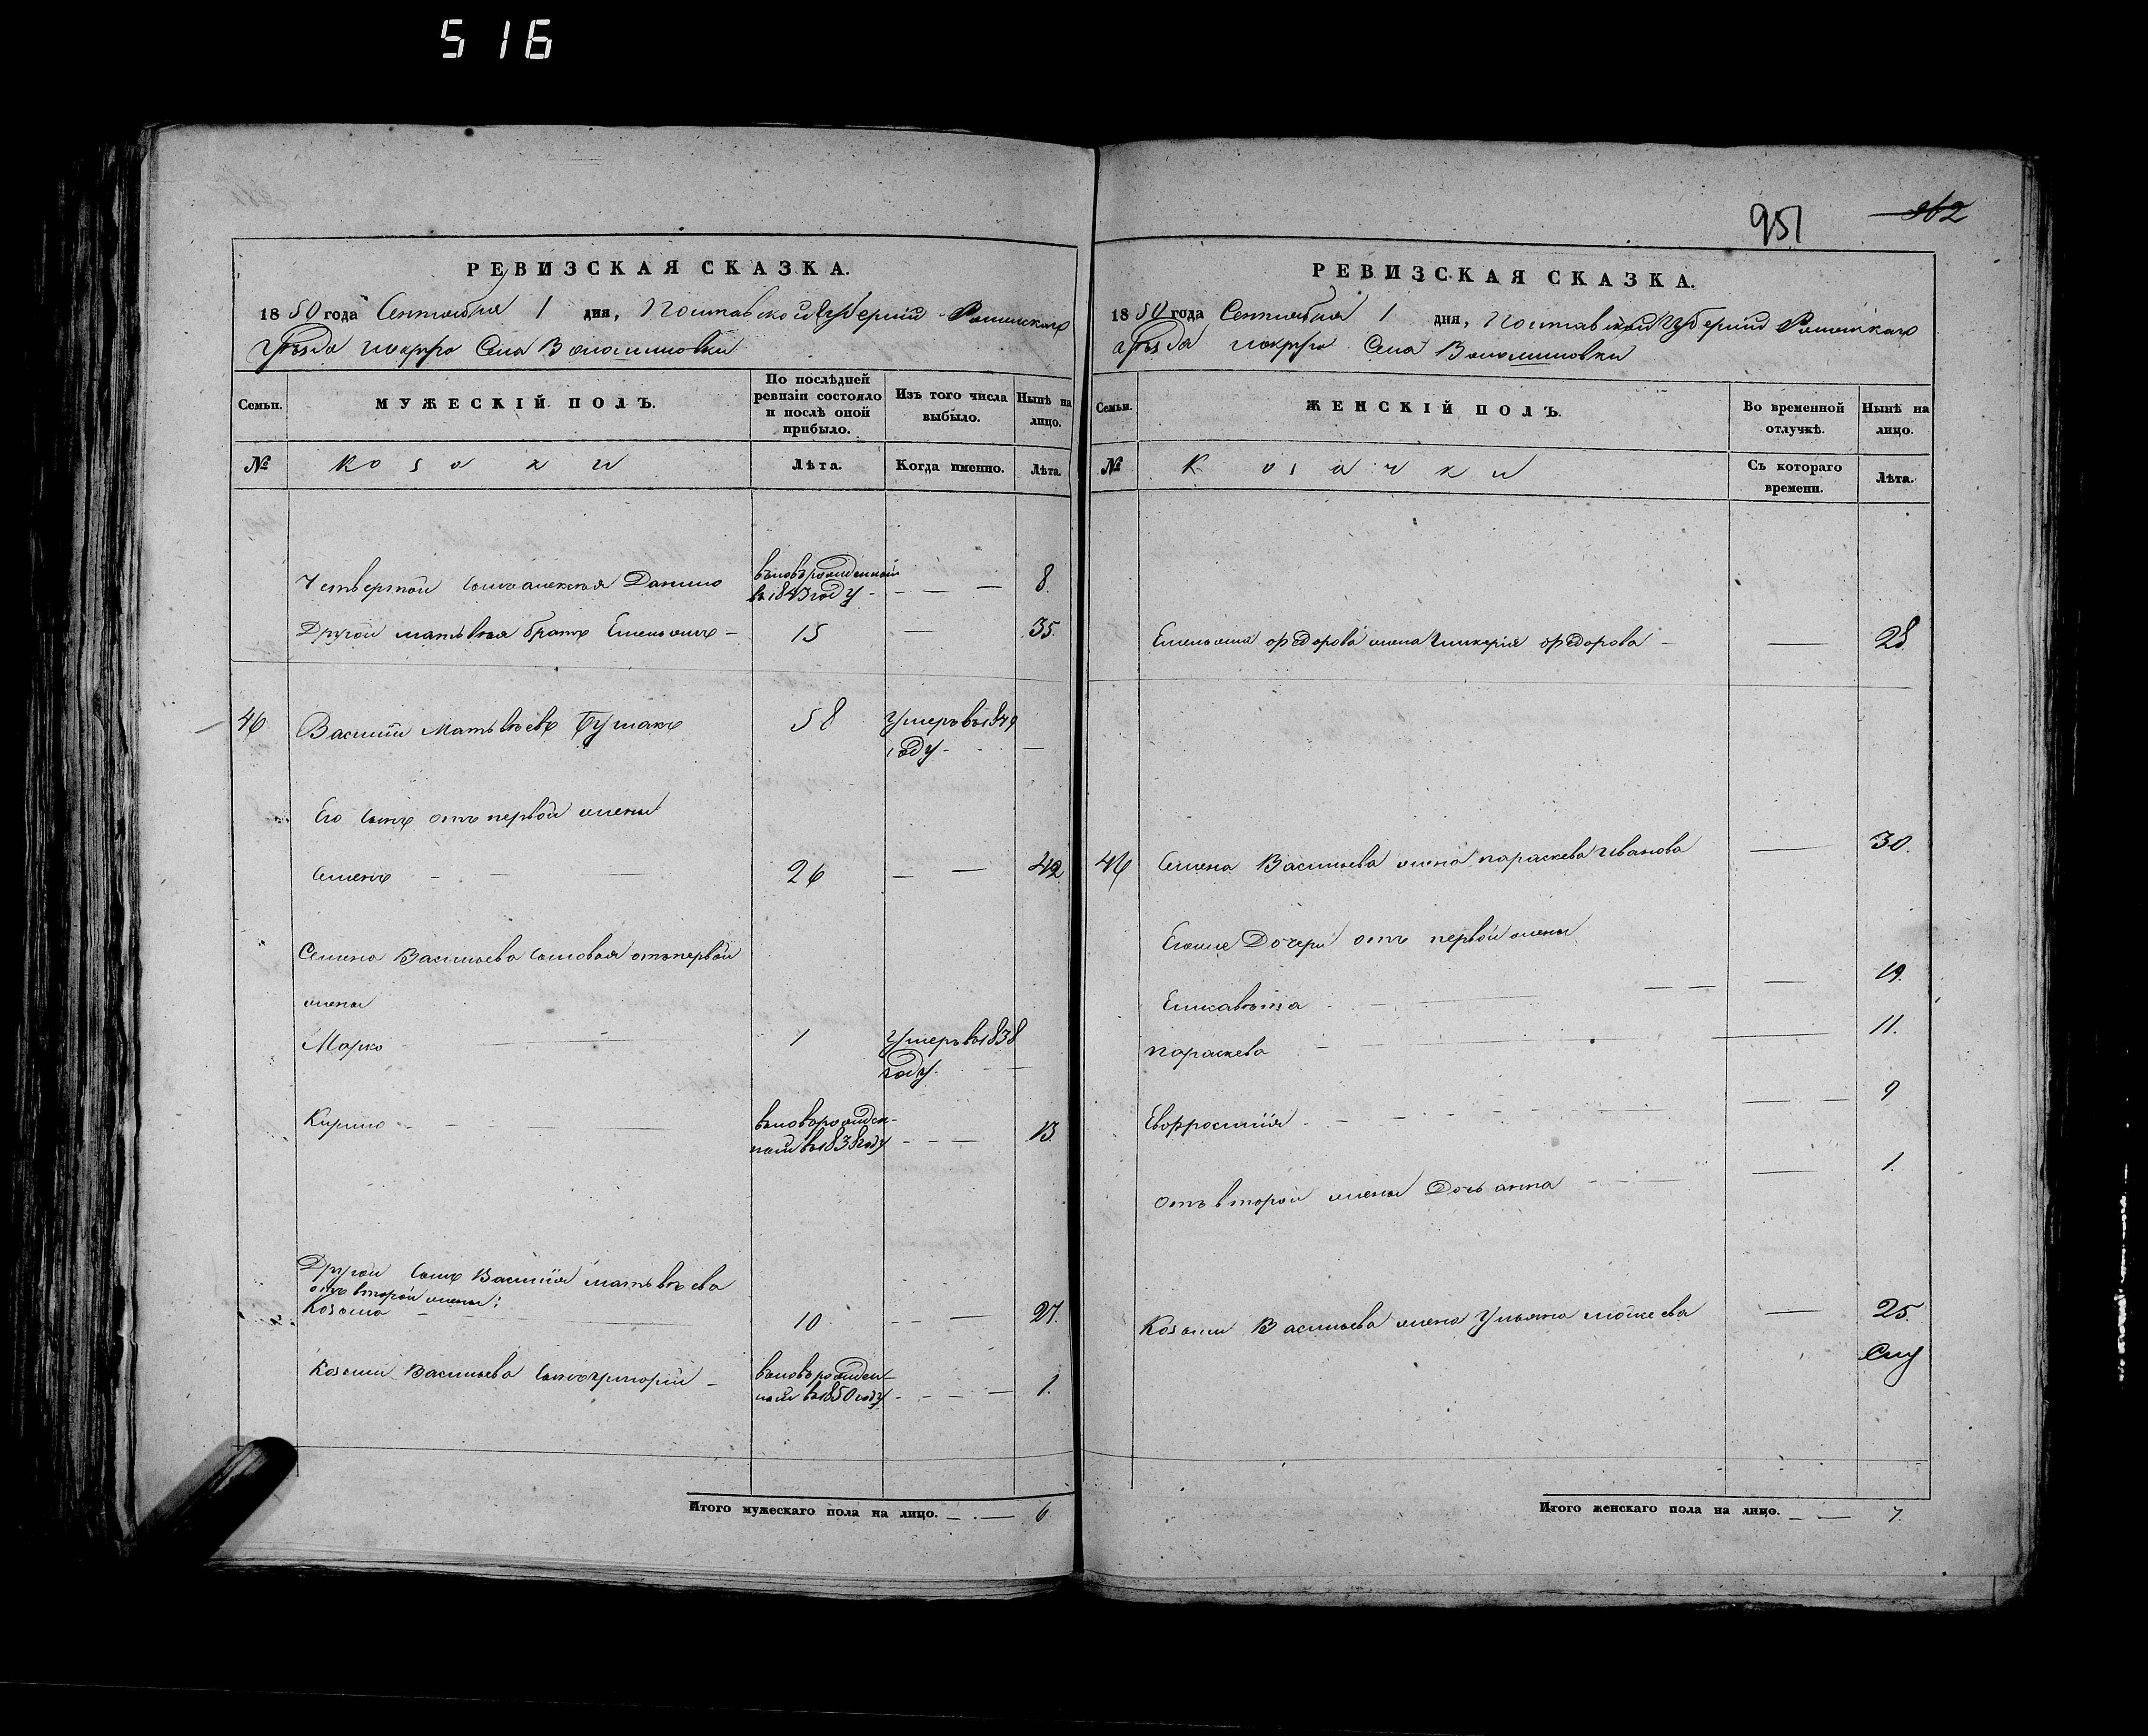 516
951
962
РЕВИЗСКАЯ СКАЗКА.
1850 года Сентября 1 дня, Полтавской губернии Роменскаго
уезда Села Волошиновки
Семьи. МУЖЕСКІЙ ПОЛЪ. По послѣдней ревизіи состояло и послѣ оной прибыло. Изъ того числа выбыло. Нынѣ на лицо.
№ козаки Лѣта. Когда именно. Лѣта.
Четвертой сынъ алексея Данило вновьрожденный въ 1843 году 8.
Другой матвѣя братъ Емельянъ 15 35.
46 Василій Матвѣевъ 58 Умеръ въ 1849 году
Его сынъ отъ первой жены
Семенъ 26 42
Семена Васильева сыновья отъ первой
жены
Марко 1 Умеръ въ 1838 году
Кирило вновьрожденной въ 1838 году 13.
Другой сынъ Василія матвѣева
отъ второй жены:
Козьма 10 27.
Козьмы Васильева сынъ григорій вновьрожденной въ 1850 году 1.
Итого мужескаго пола на лицо. 6
РЕВИЗСКАЯ СКАЗКА.
1850 года Сентября 1 дня, Полтавской губернии Роменскаго
уезда Села Волошиновки
Семьи. ЖЕНСКІЙ ПОЛЪ. Во временной отлучкѣ. Нынѣ на лицо.
№ козачки Съ котораго времени. Лѣта.
Емельяна федорова жена гликерія федорова 28.
46 Семена Васильева жена параскева иванова 30.
Егоже Дочери отъ первой жены
Елисавѣта 19.
параскева 11.
Евфросинія 9
отъ второй жены Дочь анна 1.
Козьмы Васильева жена Ульяна мойсеева 25.
Итого женскаго пола на лицо. 7.